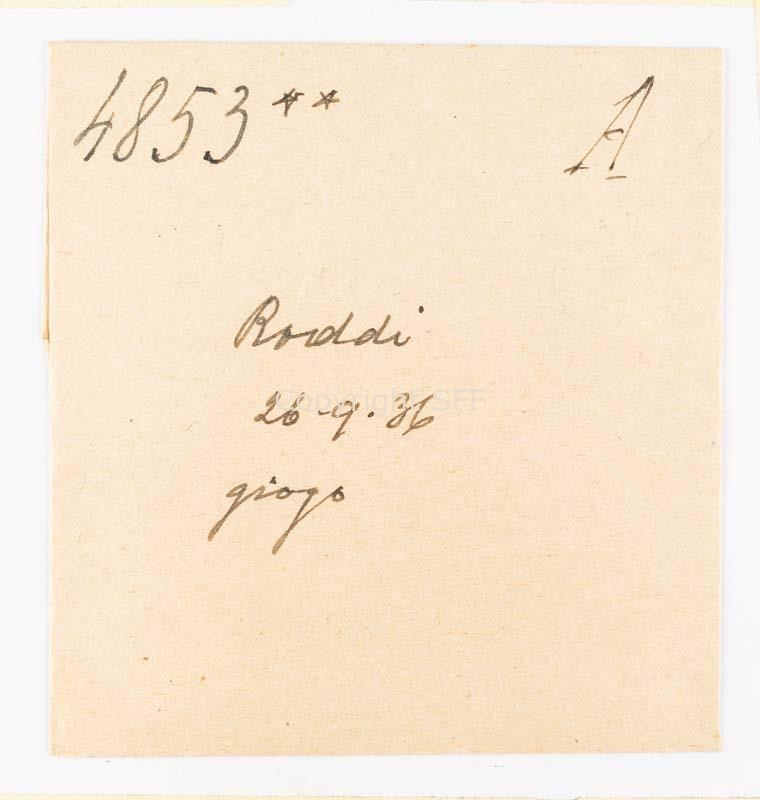 4853** A
Roddi
Copyright SFF
26-9.36
giogo